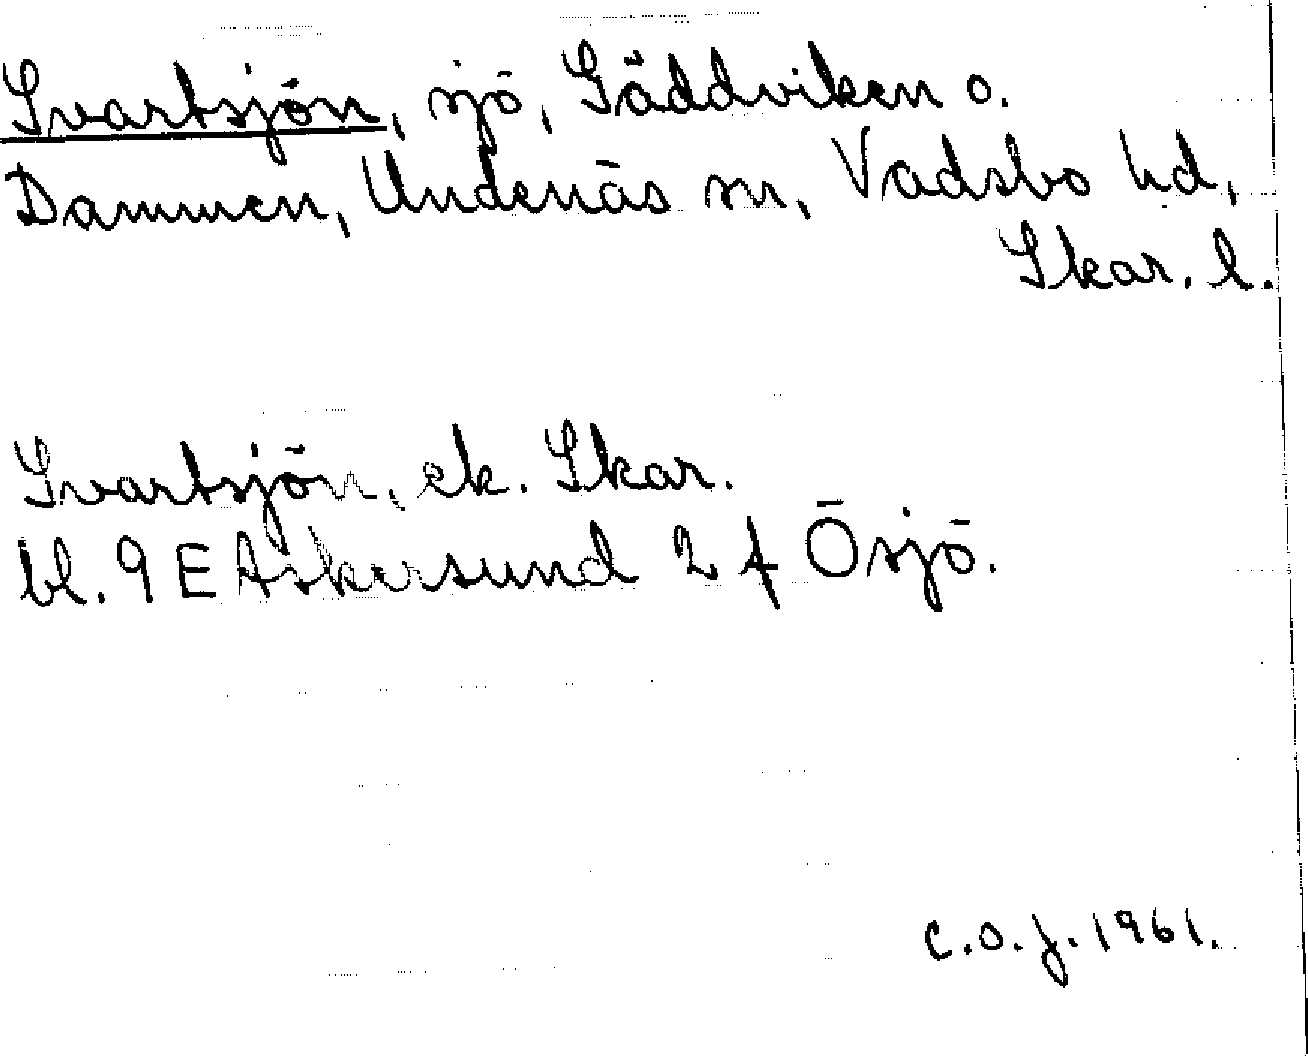 Svartsjön, sjö, Gäddviken o.
Dammen, Undenäs sn, Vadsbo hd,
Skar. l.
Svartsjön, ek. Skar.
bl. 9 E Askersund 2 f Ösjö.
C.O.J. 1961.